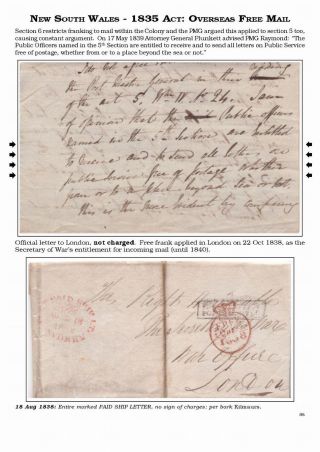 NEW SOUTH WALES - 1835 ACT: OVERSEAS FREE MAIL
Section 6 restricts franking to mail within the Colony and the PMG argued this applied to section 5 too,
causing constant argument. On 17 May 1839 Attorney General Plunkett advised PMG Raymond: "The
Public Officers named in the 5th Section are entitled to receive and to send all letters on Public Service
free of postage, whether from or to a place beyond the sea or not."
the Post Master General in this
of the act 5. Wm IV. No 24. I am
of opinion that the Public officers
named in the 5th Section are entitled
to receive and to send all letters on
public service free of postage whether
from or to a place beyond sea or not.
this is the more evident by comparing
Official letter to London, not charged. Free frank applied in London on 22 Oct 1838, as the
Secretary of War's entitlement for incoming mail (until 1840).
PAID SHIP
SYDNEY
The Right
War Office
London
18 Aug 1838: Entire marked PAID SHIP LETTER, no sign of charges: per bark Kinnears.